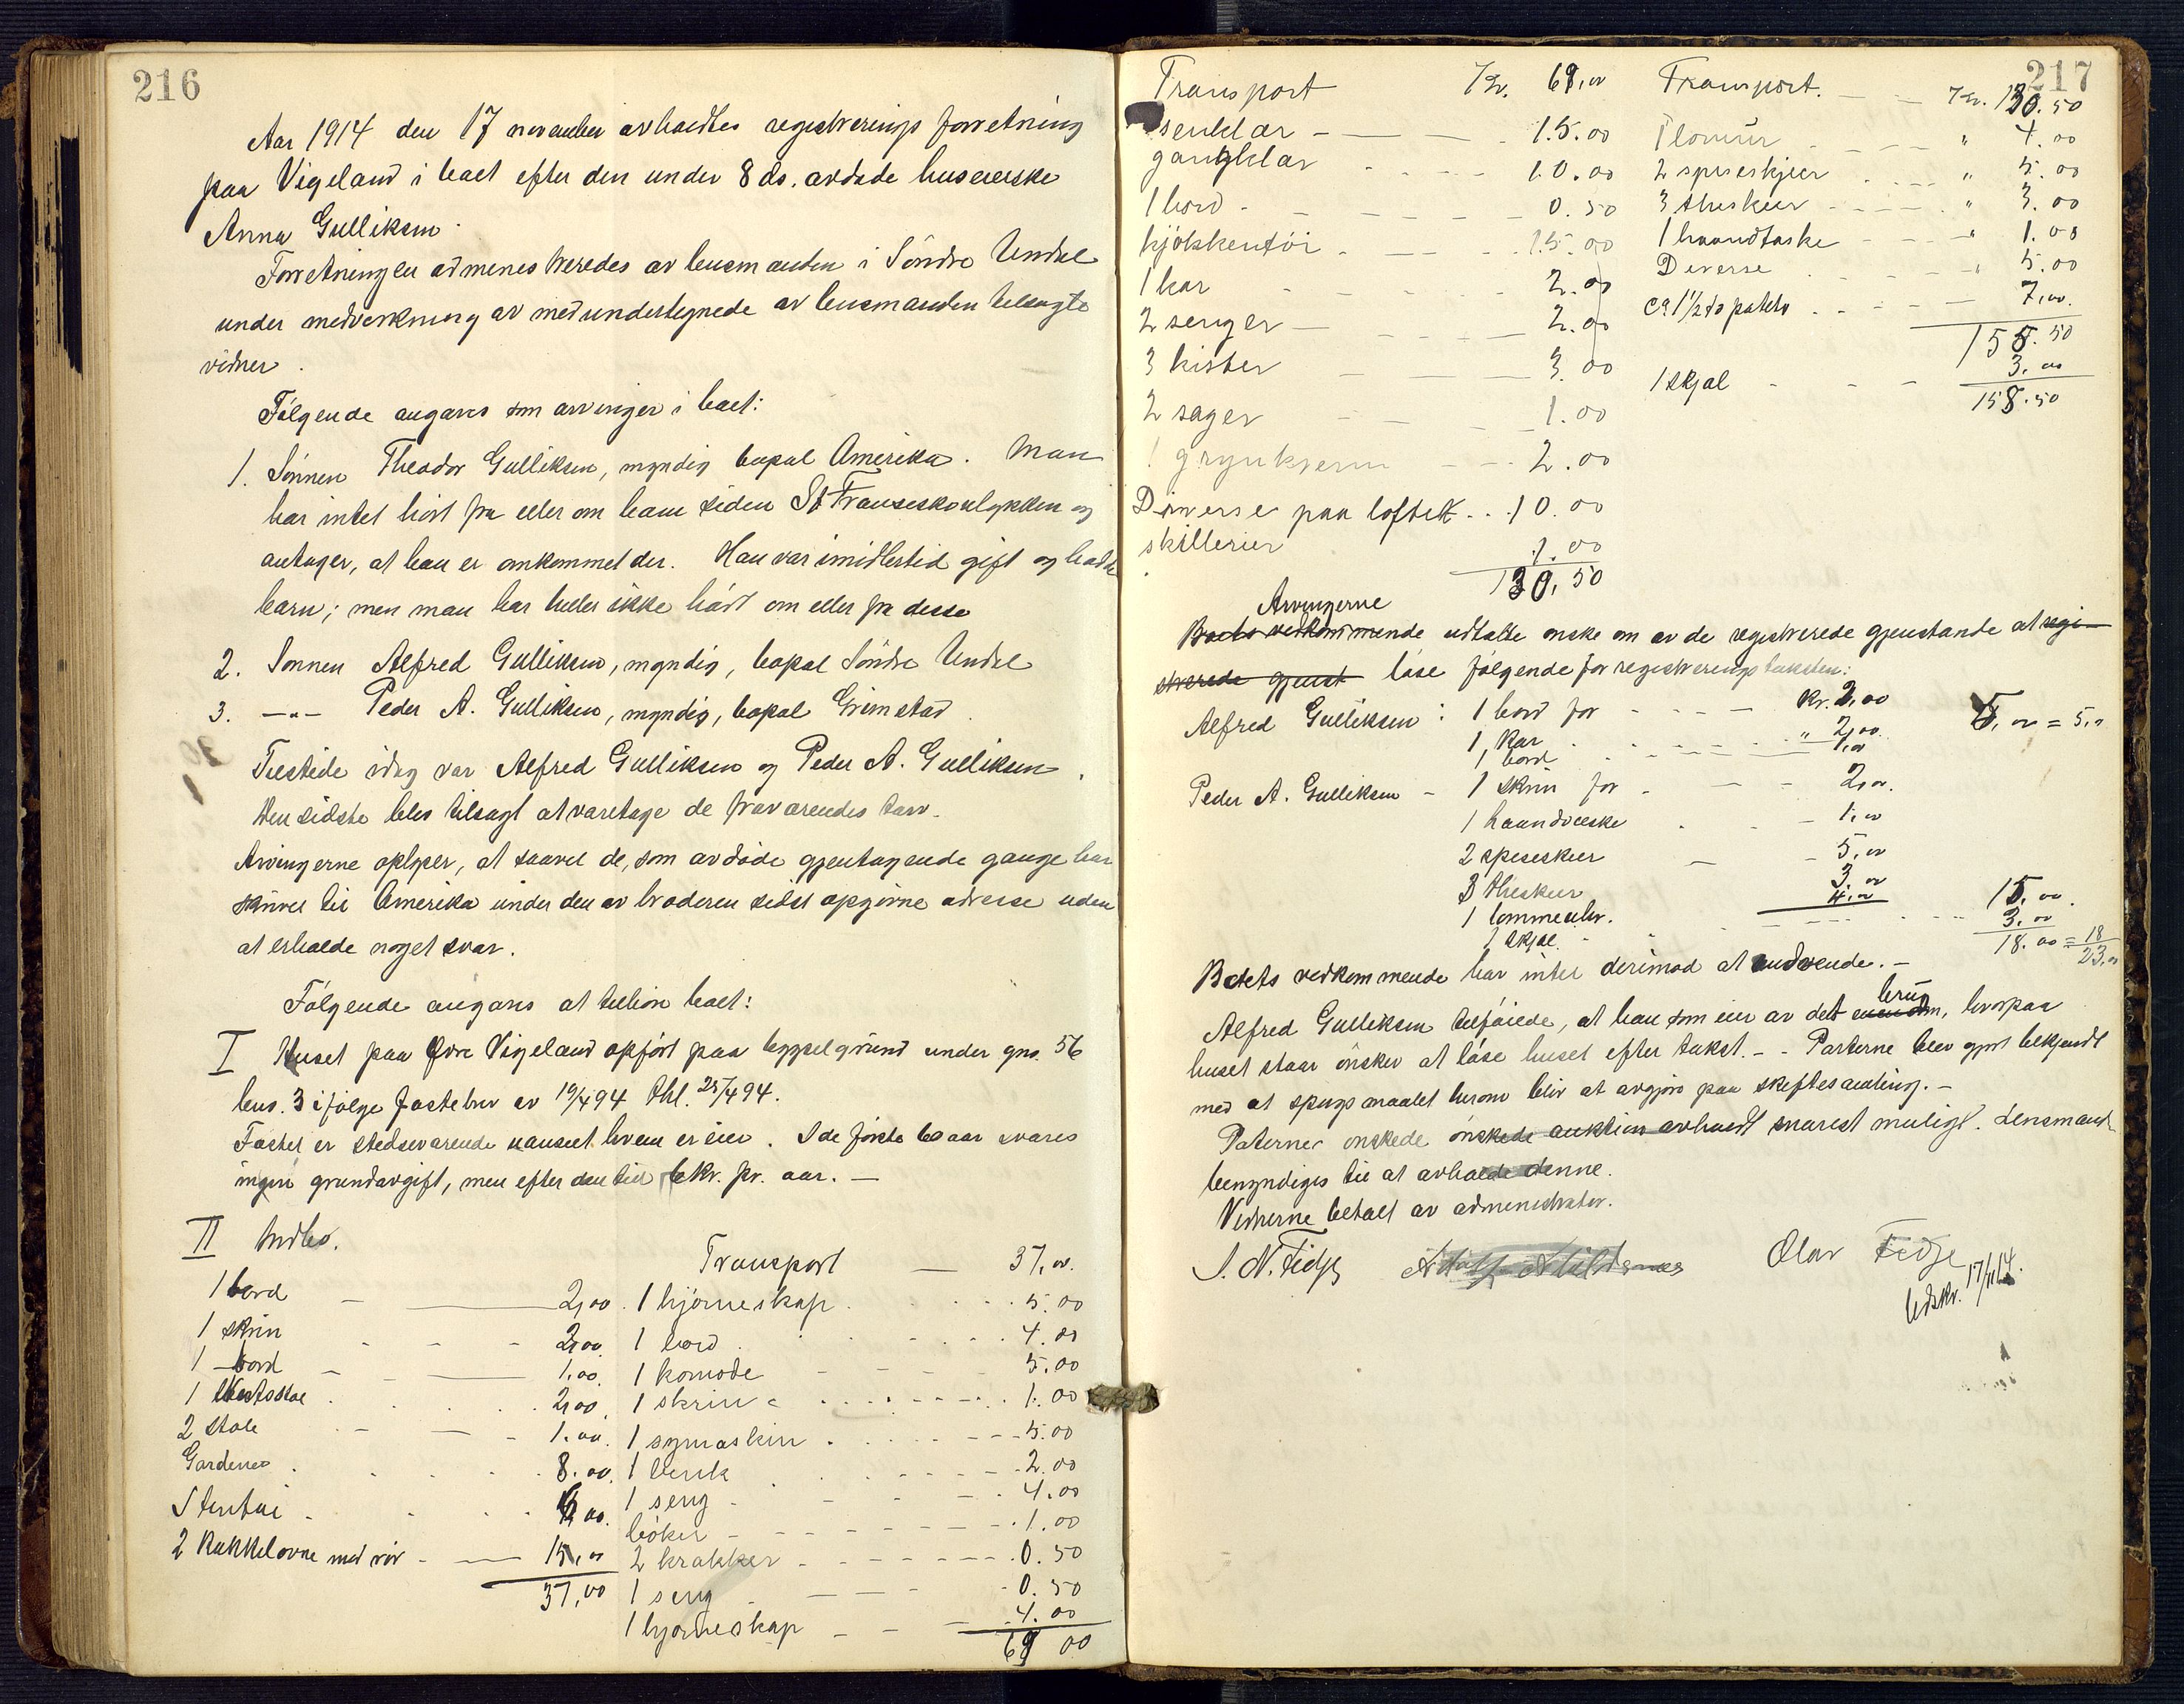 216
Aar 1914 den 17 november avholdtes registrerings forretning
paa Vigeland i boet efter den under 8 ds. avdøde huseierske
Anna Gulliksen.
Forretningen administreredes av lensmanden i Söndre Undal
under medvirkning av medundertegnede av lensmanden tilsagte
vidner.
Følgende angaves som arvinger i boet:
1. Sönnen Theodor Gulliksen, myndig bopæl Amerika. Man
har intet hört fra eller om ham siden St Franseskoulykken og
antager, at han er omkommet der. Han var imidlertid gift og hadde
barn; men man har heller ikke hört om eller fra disse
2. Sønnen Alfred Gulliksen, myndig, bopæl Söndre Undal
3. —"— Peder A. Gulliksen, myndig, bopæl Grimstad.
Tilstede idag var Alfred Gulliksen og Peder A. Gulliksen.
Den sidste blev tilsagt at varetage de fraværendes tarv.
Arvingerne oplyser, at saavel de, som avdøde gjentagende gange har
skrivet til Amerika under den av broderen sidst opgivne adresse uden
at erholde noget svar.
Følgende angaves at tilhøre boet:
I Huset paa Øvre Vigeland opført paa bygselgrund under gno. 56
bno. 3 ifølge festebrev av 19/4 94 thl. 25/4 94.
Festet er stedsevarende uanseet hvem er eier. I de første 60 aar svares
ingen grundavgift, men efter den tid kr. pr. aar. —
II Indbo.
1 bord — 2,00
1 skrin - - - 2,00
1 bord — 1,00
1 stol . . . 2,00
2 stole - — - 1.00
Gardiner . . . . 8.00
Stentøi . . . . 00
2 Kakkelovne med rør — 15,00
37,00
Transport — 37,00
1 hjörneskap . . . . 5.00
1 bord . . . . 4.00
1 komode - - - 5.00
1 skrin . . . . 1.00
1 symaskin . . . . 5.00
1 benk . . . . 2.00
1 seng - - - 4.00
böker - - - 1.00
2 krakker - - - 0.50
1 seng - - - 0.50
1 hjörneskap - - 4.00
69 00
217
Transport Kr. 69,00
senklær - — — 15.00
gangklær . - - - 10.00
1 bord - - - - 0.50
kjökkentöi . - - - 15.00
1 kar - - - - 2.00
2 senger — - - 2.00
3 kister — — 3.00
2 sager — — 1.00
1 grynkvern - - - 2.00
Diverse paa loftet . . . 10.00
skillerier 1.00
130,50
Transport. — — Kr. 130.50
1 lomur . - - - " 4.00
2 spiseskjeer . - - " 5.00
3 theskeer - - - " 3.00
1 haandtaske - - - " 1.00
Diverse . - - - " 5.00
ca 1 1/2 td poteter . - - 7,00.
155.50
1 skjal - - - 3.00
158.50
Arvingerne
Boets vedkommende udtalte ønske om av de registrerede gjenstande at regi-
strerede gjenst löse følgende for registreringstaksten:
Alfred Gulliksen : 1 bord for - - - - kr. 2,00
1 Kar . . - - - " 2,00
1 bord - - - 1,00 5,00 = 5,00
Peder A. Gulliksen - 1 skrin for - — - 2,00.
1 haandveske . - - 1,00
2 spiseskeer — - 5,00
3 theskeer 3,00
1 lommeuhr. 4,00 15,00.
1 skjal - - - - - 3,00
18.00 = 18
23,00
Boets vedkommende har intet derimod at indvende. —
Alfred Gulliksen tilføiede, at han som eier av det eiendom, hvorpaa
bruk
huset staar ønsker at löse huset efter takst. - - Parterne blev gjort bekjendt
med at spørgsmaalet herom blir at avgjøre paa skiftesamling. —
Parterne ønskede ønskede auktion avholdt snarest muligt. Lensmand
bemyndiges til at avholde denne.
Vidnerne betalt av administrator.
S. N. Fidje Olav Fidje
Udskr. 17/11 14.